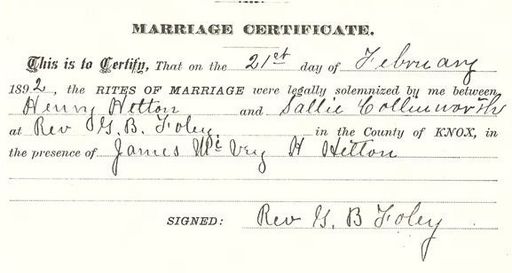 MARRIAGE CERTIFICATE.
This is to Certify, That on the 21st day of February
1892, the RITES OF MARRIAGE were legally solemnized by me between
Henry Hetton and Sallie Collinsworth
at Rev G. B. Foley in the County of KNOX, in
the presence of James H Hitton
SIGNED: Rev G. B Foley